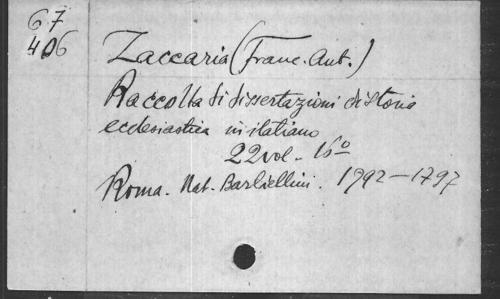 67
406
Zaccaria (Franc. Ant.)
Raccolta di dissertazioni di storia
ecclesiastica in italiano
22 vol. 16º
Roma. Nat. Barbiellini. 1792-1797